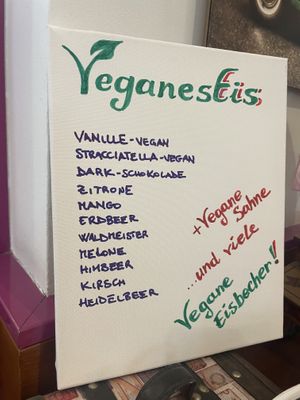 Veganes Eis
VANILLE-VEGAN
STRACCIATELLA-VEGAN
DARK-SCHOKOLADE
ZITRONE
MANGO
ERDBEER
WALDMEISTER
MELONE
HIMBEER
KIRSCH
HEIDELBEER
+Vegane
Sahne
...und viele
Vegane
Eisbecher!